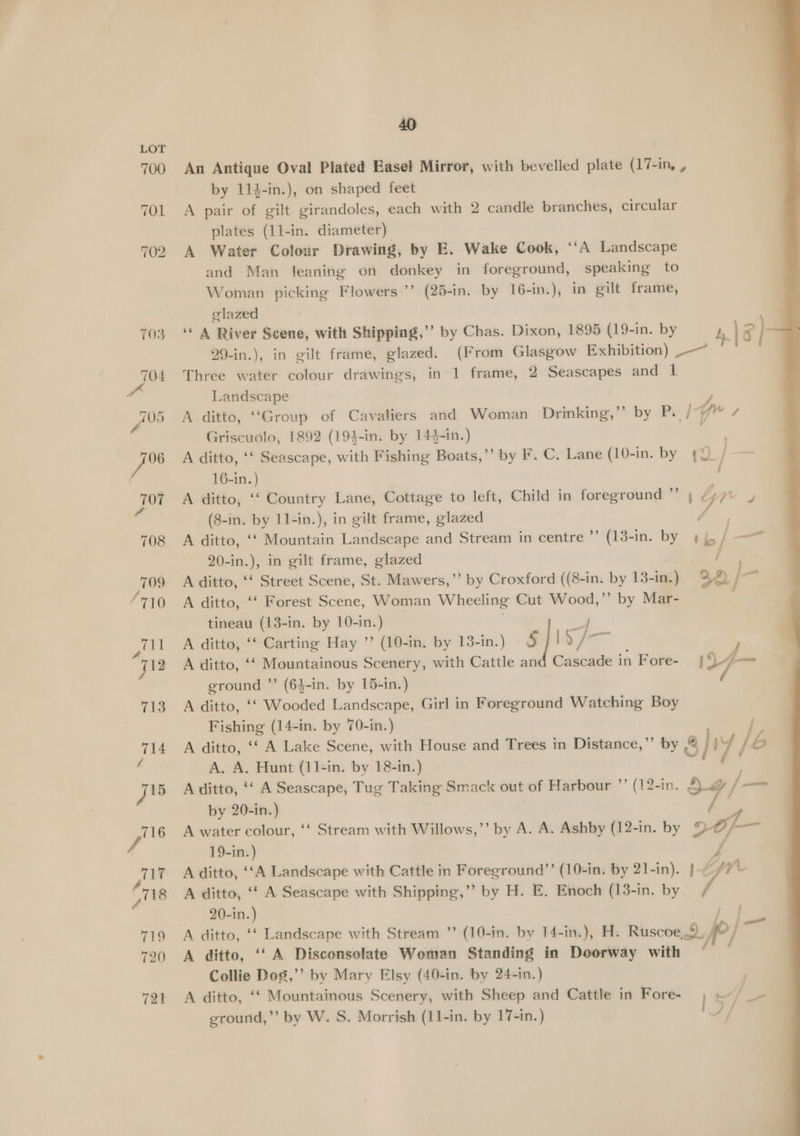 40
LOT
700 An Antique Oval Plated Easel Mirror, with bevelled plate (17-in.
by 11½-in.), on shaped feet
701 A pair of gilt girandoles, each with 2 candle branches, circular
plates (11-in. diameter)
702 A Water Colour Drawing, by E. Wake Cook, ‘‘A Landscape
and Man leaning on donkey in foreground, speaking to
Woman picking Flowers’’ (25-in. by 16-in.), in gilt frame,
glazed
703 ‘‘ A River Scene, with Shipping,’’ by Chas. Dixon, 1895 (19-in. by
29-in.), in gilt frame, glazed. (From Glasgow Exhibition)
704 Three water colour drawings, in 1 frame, 2 Seascapes and 1
Landscape
705 A ditto, ‘‘Group of Cavaliers and Woman Drinking,’’ by P.
Griscuolo, 1892 (19½-in. by 14½-in.)
706 A ditto, ‘‘ Seascape, with Fishing Boats,’’ by F. C. Lane (10-in. by
16-in.)
707 A ditto, ‘‘ Country Lane, Cottage to left, Child in foreground ’’
(8-in. by 11-in.), in gilt frame, glazed
708 A ditto, ‘‘ Mountain Landscape and Stream in centre ’’ (13-in. by
20-in.), in gilt frame, glazed
709 A ditto, ‘‘ Street Scene, St. Mawers,’’ by Croxford ((8-in. by 13-in.)
710 A ditto, ‘‘ Forest Scene, Woman Wheeling Cut Wood,’’ by Mar-
tineau (13-in. by 10-in.)
711 A ditto, ‘‘ Carting Hay ’’ (10-in. by 13-in.)
712 A ditto, ‘‘ Mountainous Scenery, with Cattle and Cascade in Fore-
ground ’’ (6½-in. by 15-in.)
713 A ditto, ‘‘ Wooded Landscape, Girl in Foreground Watching Boy
Fishing (14-in. by 70-in.)
714 A ditto, ‘‘ A Lake Scene, with House and Trees in Distance,’’ by
A. A. Hunt (11-in. by 18-in.)
715 A ditto, ‘‘ A Seascape, Tug Taking Smack out of Harbour ’’ (12-in.
by 20-in.)
716 A water colour, ‘‘ Stream with Willows,’’ by A. A. Ashby (12-in. by
19-in.)
717 A ditto, ‘‘A Landscape with Cattle in Foreground’’ (10-in. by 21-in).
718 A ditto, ‘‘ A Seascape with Shipping,’’ by H. E. Enoch (13-in. by
20-in.)
719 A ditto, ‘‘ Landscape with Stream ’’ (10-in. by 14-in.), H. Ruscoe
720 A ditto, ‘‘ A Disconsolate Woman Standing in Doorway with
Collie Dog,’’ by Mary Elsy (40-in. by 24-in.)
721 A ditto, ‘‘ Mountainous Scenery, with Sheep and Cattle in Fore-
ground,’’ by W. S. Morrish (11-in. by 17-in.)